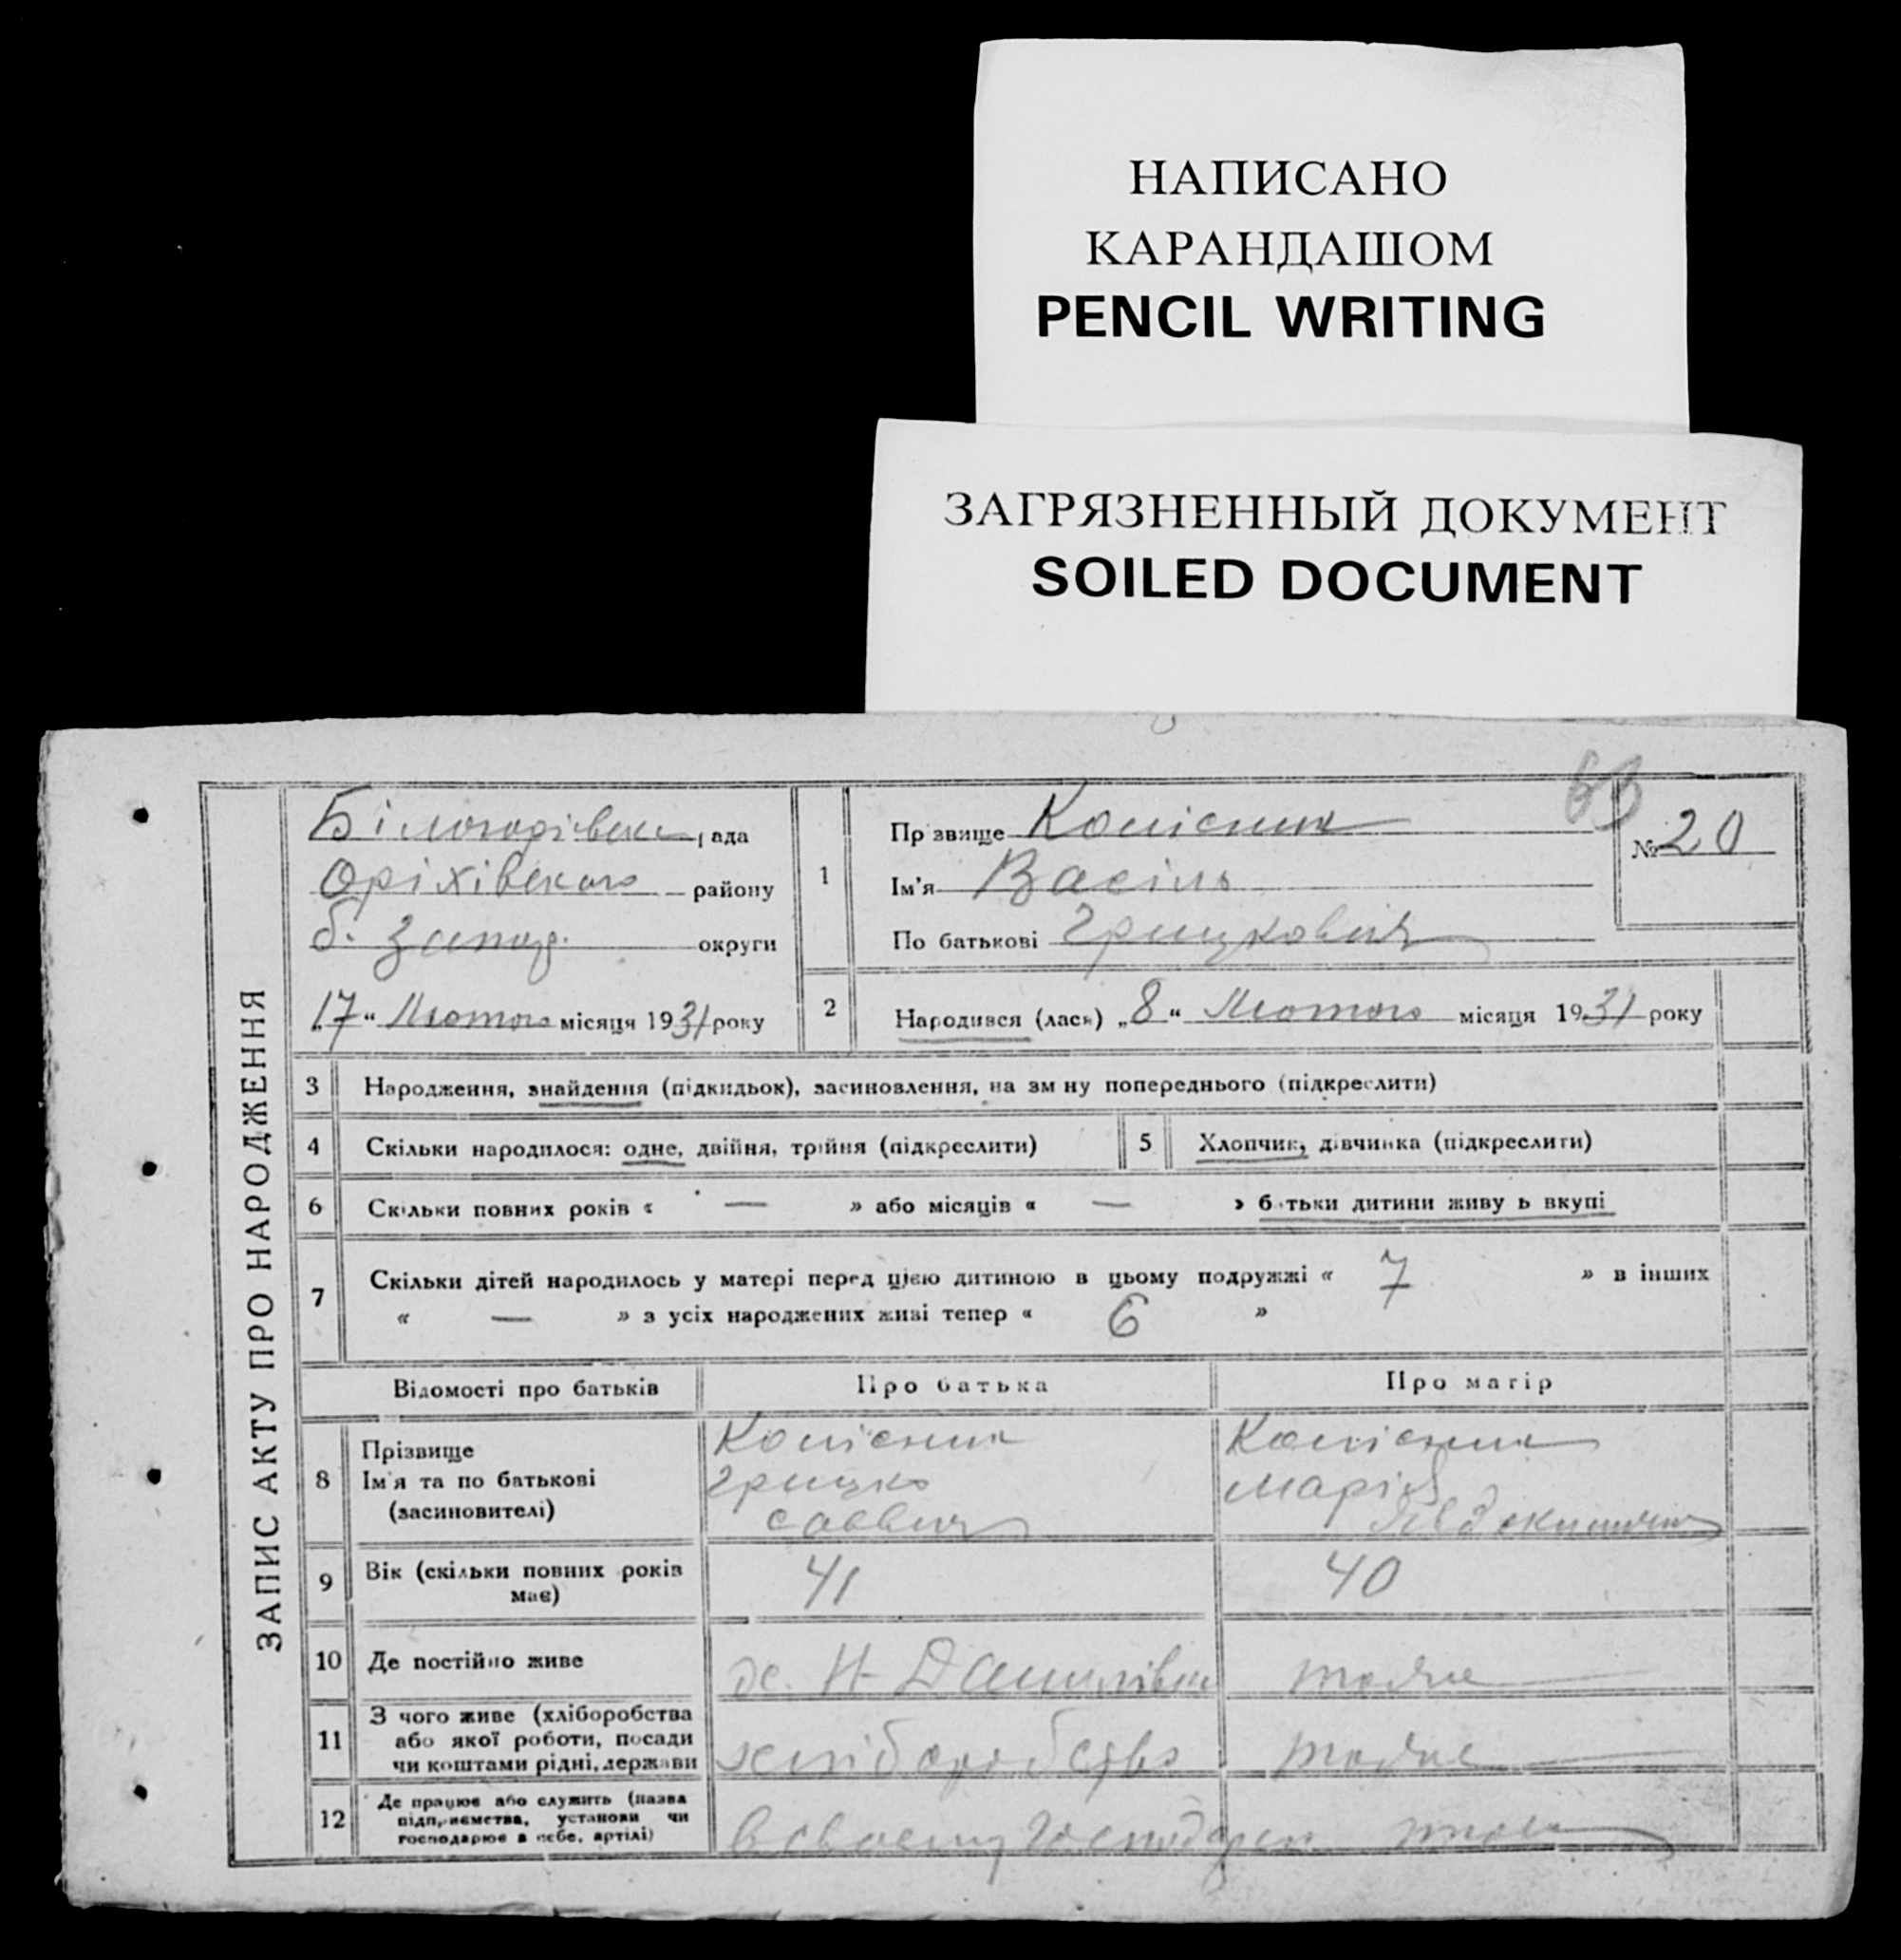 НАПИСАНО
КАРАНДАШОМ
PENCIL WRITING
ЗАГРЯЗНЕННЫЙ ДОКУМЕНТ
SOILED DOCUMENT
ЗАПИС АКТУ ПРО НАРОДЖЕННЯ
рада
Оріхівського району
б. Запор. округи
„17“ Лютого місяця 1931 року
№ 20
1 Прізвище
Ім'я Васіль
По батькові Грицкович
2 Народився (лась) „8“ Лютого місяця 1931 року
3 Народження, знайдення (підкидьок), засиновлення, на зміну попереднього (підкреслити)
4 Скільки народилося: одне, двійня, трійня (підкреслити)
5 Хлопчик, дівчинка (підкреслити)
6 Скільки повних років « — » або місяців « — » батьки дитини живуть вкупі
7 Скільки дітей народилось у матері перед цією дитиною в цьому подружжі « 7 » в інших
« — » з усіх народжених живі тепер « 6 »
Відомості про батьків Про батька Про матір
8 Прізвище
Ім'я та по батькові
(засиновителі)
Грицко
Саввич
Марія
9 Вік (скільки повних років
має)
41 40
10 Де постійно живе
Н-Данилівка тоже
11 З чого живе (хліборобства
або якої роботи, посади
чи коштами рідні, держави
хліборобство тоже
12 Де працює або служить (назва
підприємства, установи чи
господарює в себе, артілі)
в своему господарстві